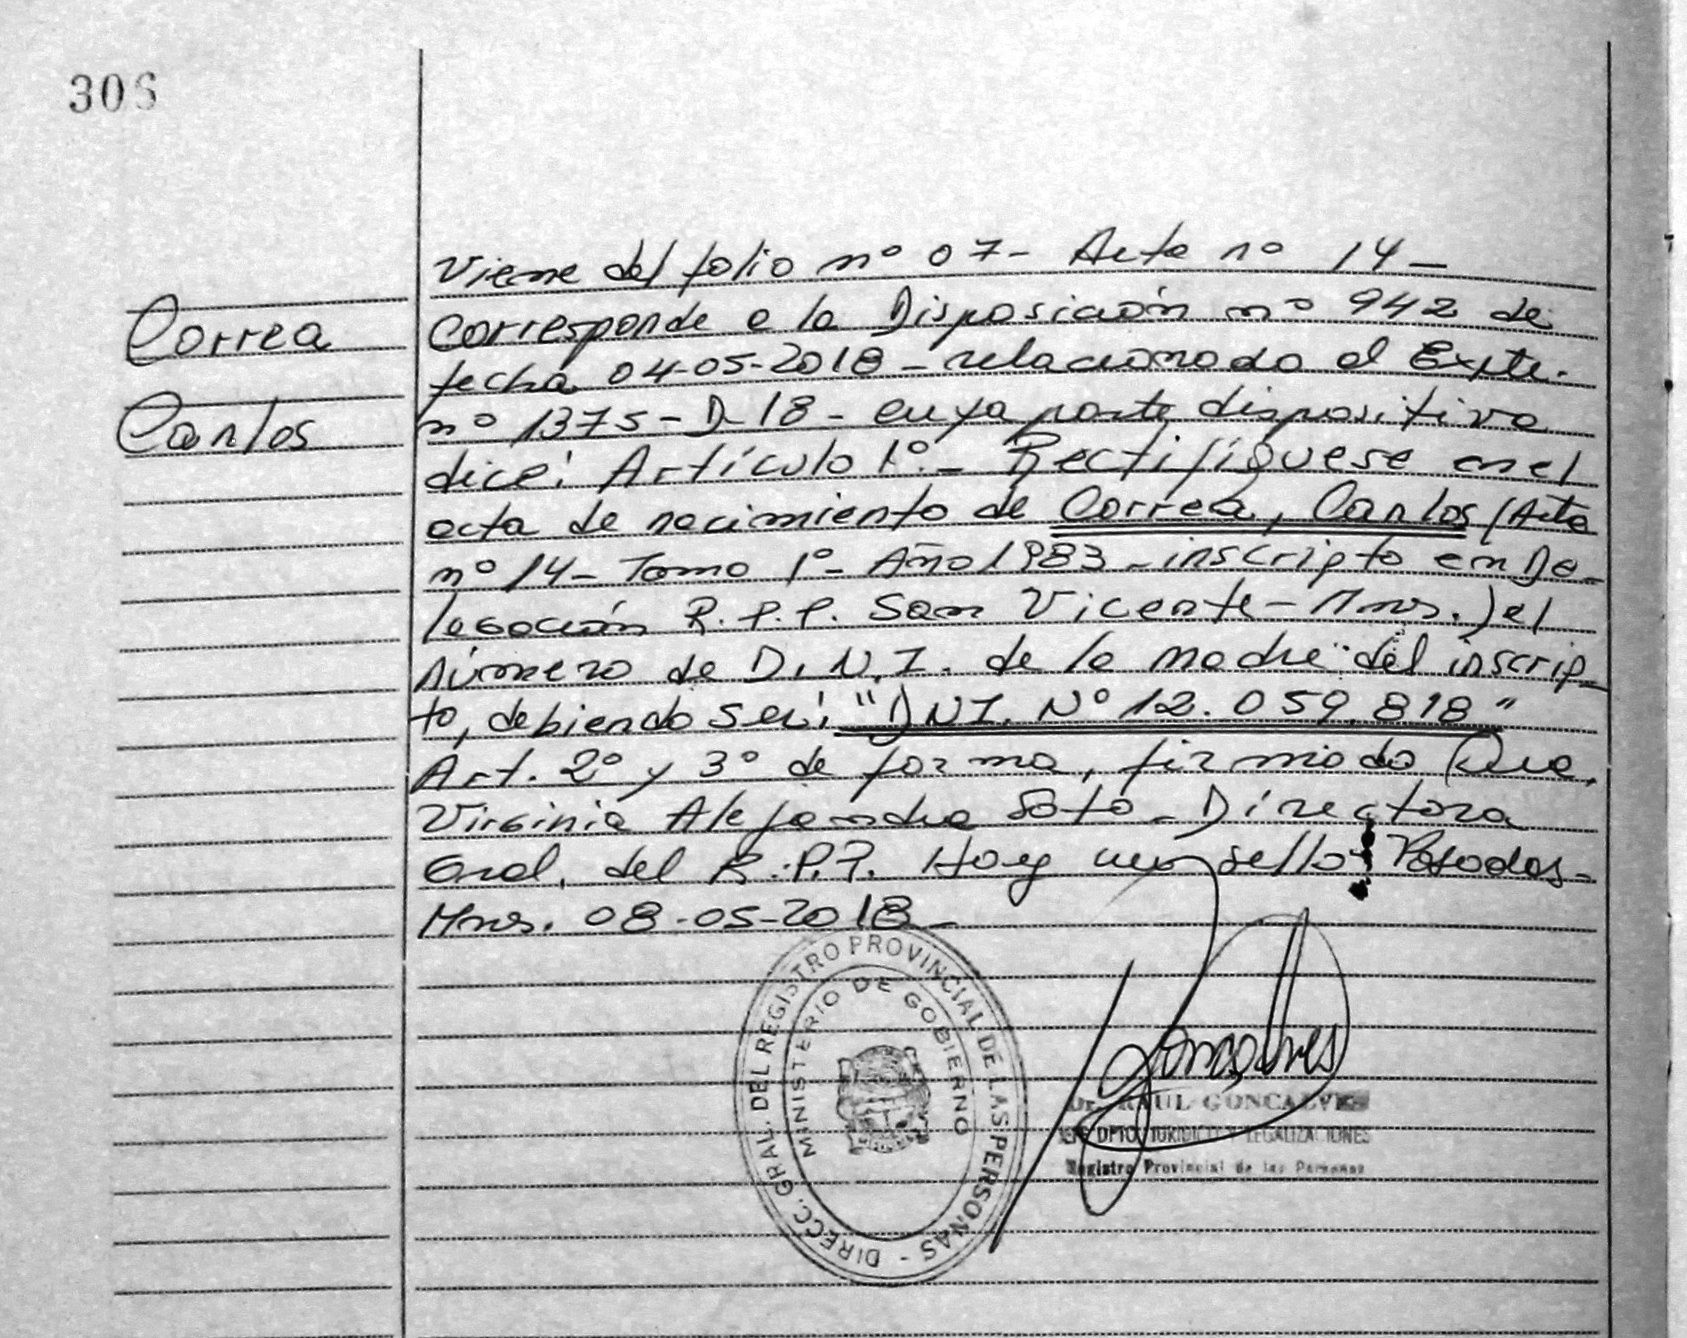 306
Correa
Carlos
Viene del folio nº 07- Acta nº 14-
Corresponde a la Disposición nº 942 de
fecha 04-05-2018 - relacionado al Expte.
nº 1375-D-18- cuya parte dispositiva
dice: Artículo 1º.- Rectifíquese en el
acta de nacimiento de Correa, Carlos (Acta
nº 14- Tomo 1º- Año 1983 - inscripto en De-
legación R.P.P. San Vicente - Mnes.) el
número de D.N.I. de la madre del inscrip-
to, debiendo ser: "DNI. Nº 12.059.818"
Art. 2º y 3º de forma, firmado Dra.
Virginia Alejandra Soto - Directora
Gral. del R.P.P. Hay un sello - Posadas-
Mnes. 08-05-2018-
DIRECC. GRAL. DEL REGISTRO PROVINCIAL DE LAS PERSONAS -
MINISTERIO DE GOBIERNO
Goncalves
Dr. RAUL GONCALVES
JEFE DPTO. JURIDICO Y LEGALIZACIONES
Registro Provincial de las Personas